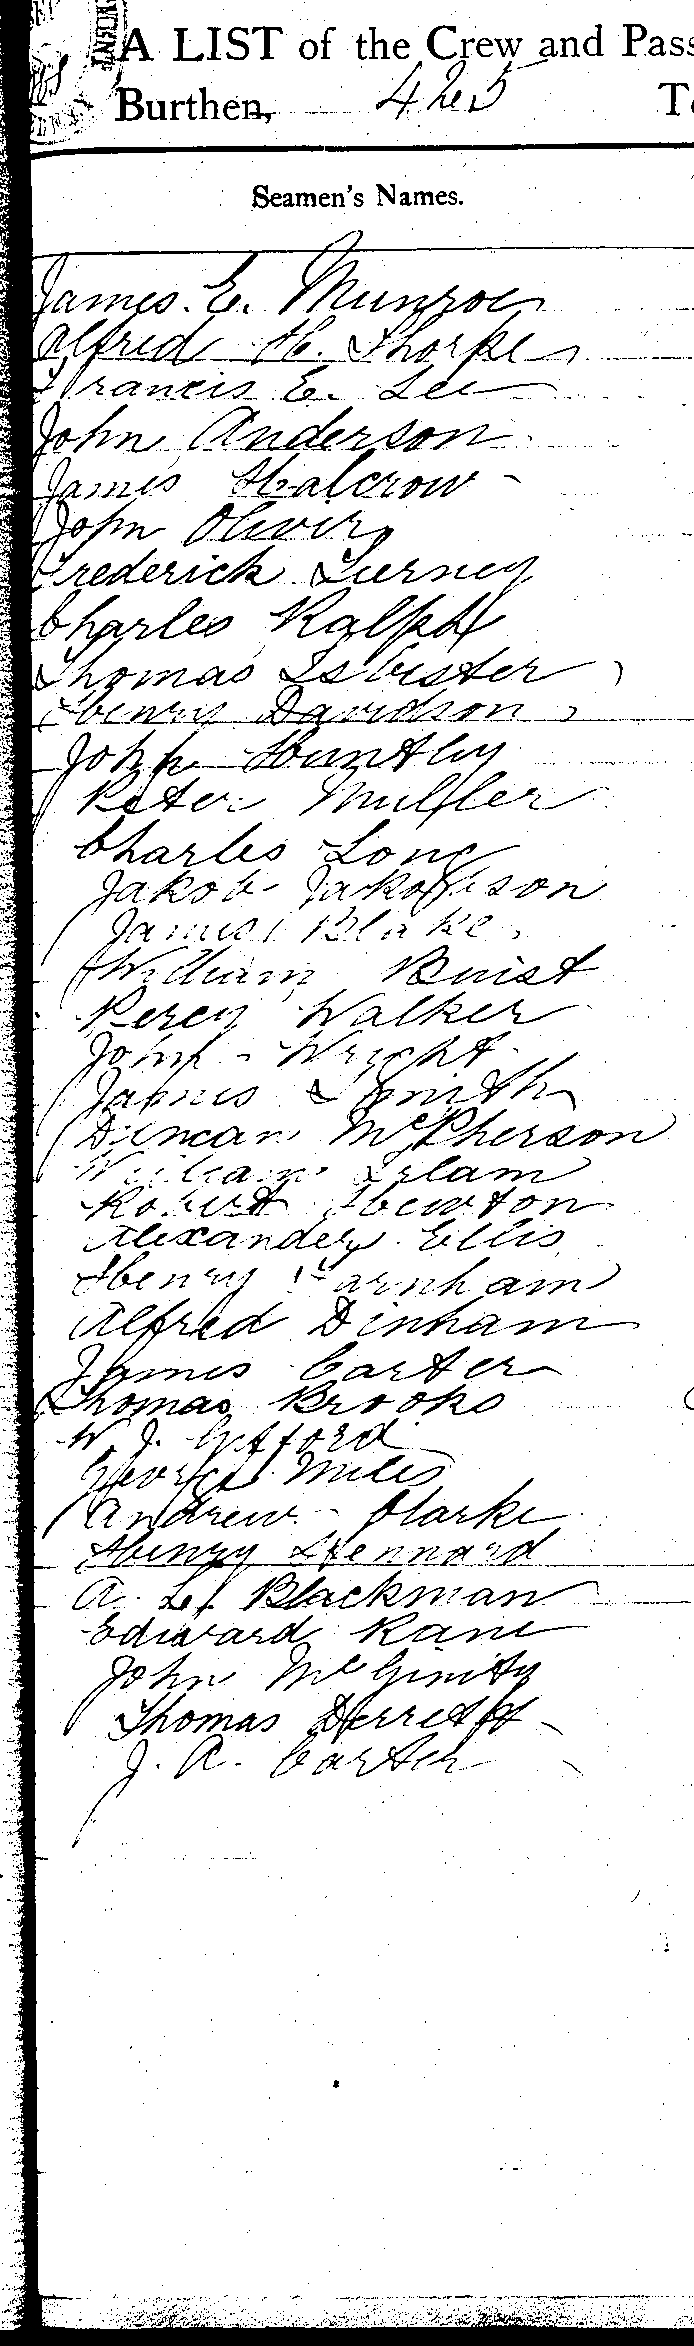 A LIST of the Crew and Pass
Burthen, 425 T
Seamen's Names.
James. E. Munroe
Alfred H. Thorpe
Francis E. Lee
John Anderson
James Halcrow
John Oliver
Frederick Tierney
Charles Ralph
Thomas Isbister
Henry Davidson
John Huntley
Peter Muller
Charles Long
Jakob Jakobson
James Blake
William Buist
Percy Walker
John Wright
James Smith
Duncan McPherson
William Irlam
Robert Hewton
Alexander Ellis
Henry Farnham
Alfred Dinham
James Carter
Thomas Brooks
W. J. Gifford
George Miles
Andrew Clarke
Henry Stennard
A. L. Blackman
Edward Kane
John McGinity
Thomas Derrett
J. A. Carter